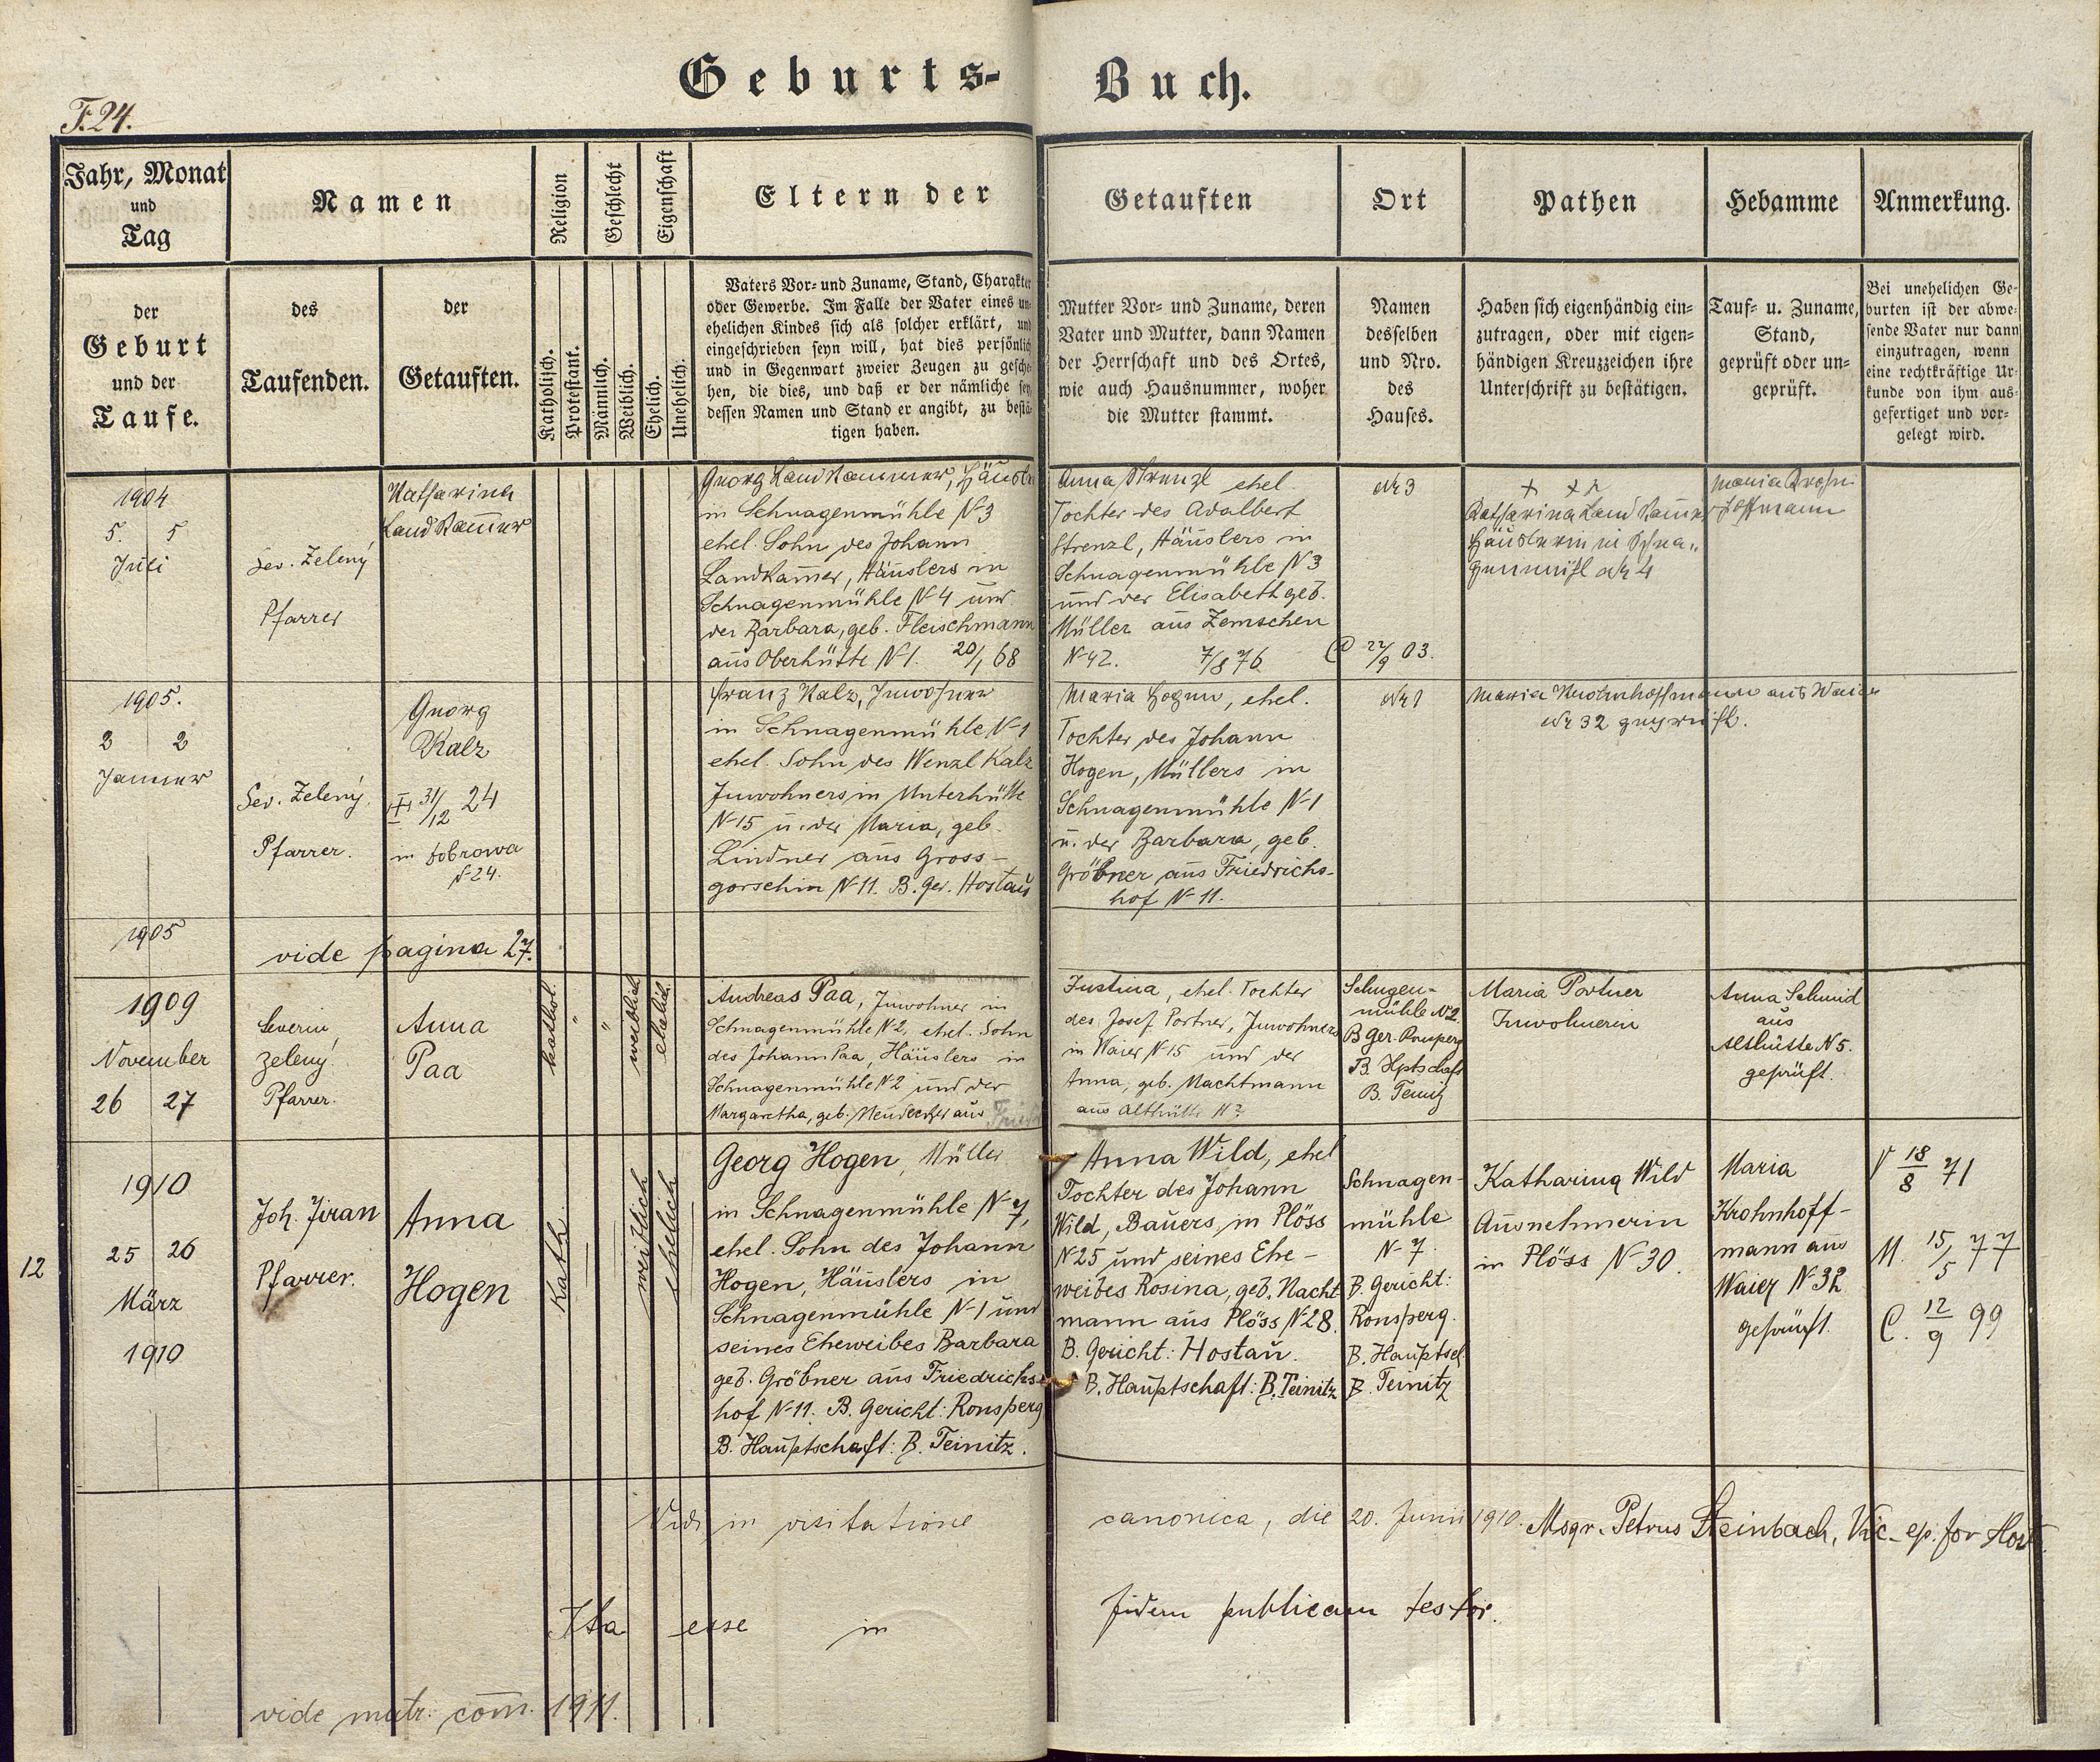 Geburts-Buch.
F. 24.
Jahr, Monat
und
Tag
Namen
Religion
Geschlecht
Eigenschaft
Eltern der
Getauften
Ort
Pathen
Hebamme
Anmerkung.
der
Geburt
und der
Taufe.
des
Taufenden.
der
Getauften.
Katholisch.
Protestant.
Männlich.
Weiblich.
Ehelich.
Unehelich.
Vaters Vor- und Zuname, Stand, Charakter
oder Gewerbe. Im Falle der Vater eines un-
ehelichen Kindes sich als solcher erklärt, und
eingeschrieben seyn will, hat dies persönlich
und in Gegenwart zweier Zeugen zu gesche-
hen, die dies, und daß er der nämliche sey,
dessen Namen und Stand er angibt, zu bestä-
tigen haben.
Mutter Vor- und Zuname, deren
Vater und Mutter, dann Namen
der Herrschaft und des Ortes,
wie auch Hausnummer, woher
die Mutter stammt.
Namen
desselben
und Nro.
des
Hauses.
Haben sich eigenhändig ein-
zutragen, oder mit eigen-
händigen Kreuzzeichen ihre
Unterschrift zu bestätigen.
Tauf- u. Zuname,
Stand,
geprüft oder un-
geprüft.
Bei unehelichen Ge-
burten ist der abwe-
sende Vater nur dann
einzutragen, wenn
eine rechtkräftige Ur-
kunde von ihm aus-
gefertiget und vor-
gelegt wird.
1904
5. 5
Juli
Sev. Zelený
Pfarrer
Katharina
Landkam̄er
Georg Landkammer, Häusler
in Schnagenmühle N-3
ehel. Sohn des Johann
Landkam̄er, Häuslers in
Schnagenmühle N-4 und
der Barbara, geb. Fleischmann
aus Oberhütte N-1. 20/1 68
Anna Strenzl ehel.
Tochter des Adalbert
Strenzl, Häuslers in
Schnagenmühle N-3
und der Elisabeth geb.
Müller aus Zemschen
N-42. 7/8 76
Nr 3
C 27/9 03.
Katharina Landkam̄er
Häuslerin in Schna-
genmühl Nr 4
Maria
Hoffmann
1905.
2 2
Jänner
Sev. Zelený,
Pfarrer.
Georg
Kalz
31/12 24
in Dobrowa
N-24.
Franz Kalz, Inwohner
in Schnagenmühle N-1
ehel. Sohn des Wenzl Kalz
Inwohners in Unterhütte
N-15 u. der Maria, geb.
Lindner aus Gross-
gorschin N-11. B. Ger. Hostau
Maria Hogen, ehel.
Tochter des Johann
Hogen, Müllers in
Schnagenmühle N-1
u. der Barbara, geb.
Gröbner aus Friedrichs-
hof N-11.
Nr 1
Maria Krohnhoffmann aus Waier
Nr 32 geprüft.
1905
vide pagina 27.
1909
November
26 27
Severin
Zelený
Pfarrer.
Anna
Paa
kathol.
"
"
weiblich
ehelich
Andreas Paa, Inwohner in
Schnagenmühle N-2, ehel. Sohn
des Johann Paa, Häuslers in
Schnagenmühle N-2 und der
Margaretha, geb. aus
Justina, ehel. Tochter
des Josef Portner, Inwohners
in Waier N-15 und der
Anna, geb. Machtmann
aus Althütte N-
Schagen-
mühle N2.
B Ger. Ronsperg
B. Hptschaft
B. Teinitz
Maria Portner
Inwohnerin
Anna Schmid
aus
Althütte N 5.
geprüft.
12
1910
25 26
März
1910
Joh. Jiran
Pfarrer.
Anna
Hogen
Kath.
weiblich
ehelich
Georg Hogen, Müller
in Schnagenmühle N-7,
ehel. Sohn des Johann
Hogen, Häuslers in
Schnagenmühle N-1 und
seines Eheweibes Barbara
geb. Gröbner aus Friedrichs-
hof N-11. B. Gericht: Ronsperg
B. Hauptschaft: B. Teinitz.
Anna Wild, ehel
Tochter des Johann
Wild, Bauers in Plöss
N-25 und seines Ehe-
weibes Rosina, geb. Nacht
mann aus Plöss N-28.
B. Gericht: Hostau.
B. Hauptschaft: B. Teinitz
Schnagen-
mühle
N-7.
B. Gericht:
Ronsperg.
B. Hauptsch
B. Teinitz
Katharina Wild
Ausnehmerin
in Plöss N-30.
Maria
Krohnhoff-
mann aus
Waier N-32
geprüft.
V 18/8 71
M. 15/5 77
C. 12/9 99
Vidi in visitatione canonica, die 20. Junii 1910. Msgr. Petrus Steinbach, Vic. ep. for Host.
Ita esse in fidem publicam testor.
vide matr. com̄. 1911.